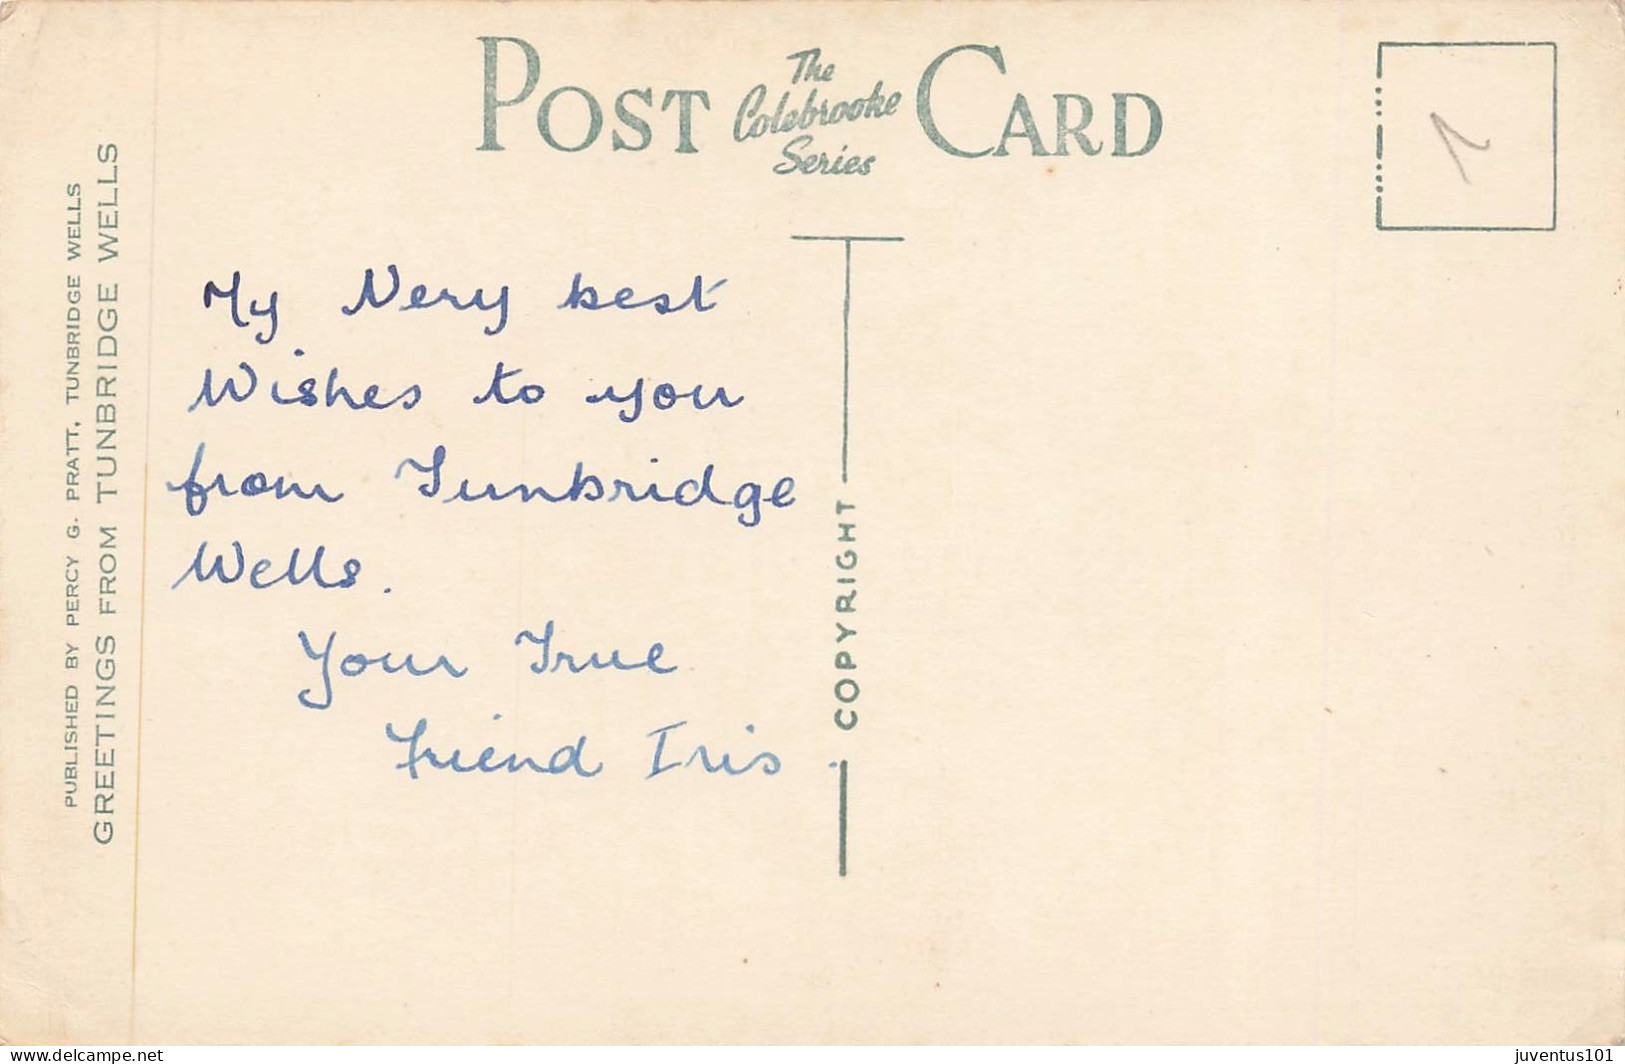 POST The Colebrooke Series CARD
PUBLISHED BY PERCY G. PRATT, TUNBRIDGE WELLS
GREETINGS FROM TUNBRIDGE WELLS
My Very best
Wishes to you
from Tunbridge
Wells.
Your True
Friend Iris.
COPYRIGHT
1
www.delcampe.net
juventus101